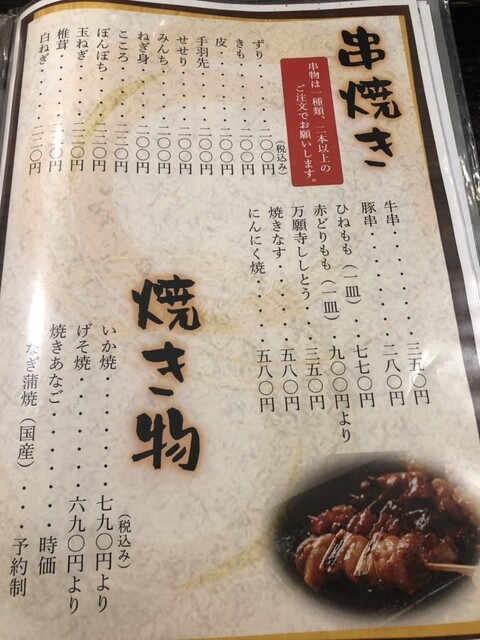 串焼き
串物は一種類、二本以上の
ご注文でお願いします。
(税込み)
ずり・・・・・・二〇〇円
きも・・・・・・二〇〇円
皮・・・・・・・二〇〇円
手羽先・・・・・二〇〇円
せせり・・・・・二〇〇円
みんち・・・・・二〇〇円
ねぎ身・・・・・二〇〇円
こころ・・・・・二二〇円
ぼんぼち・・・・二二〇円
玉ねぎ・・・・・二二〇円
椎茸・・・・・・二二〇円
白ねぎ・・・・・二二〇円
牛串・・・・・・・三五〇円
豚串・・・・・・・二八〇円
ひねもも(一皿)・・七七〇円
赤どりもも(一皿)・九〇〇円より
万願寺ししとう・・・三五〇円
焼きなす・・・・・五八〇円
にんにく焼・・・・五八〇円
焼き物
(税込み)
いか焼・・・・・・七九〇円より
げそ焼・・・・・・六九〇円より
焼きあなご・・・・・時価
なぎ蒲焼(国産)・・・予約制